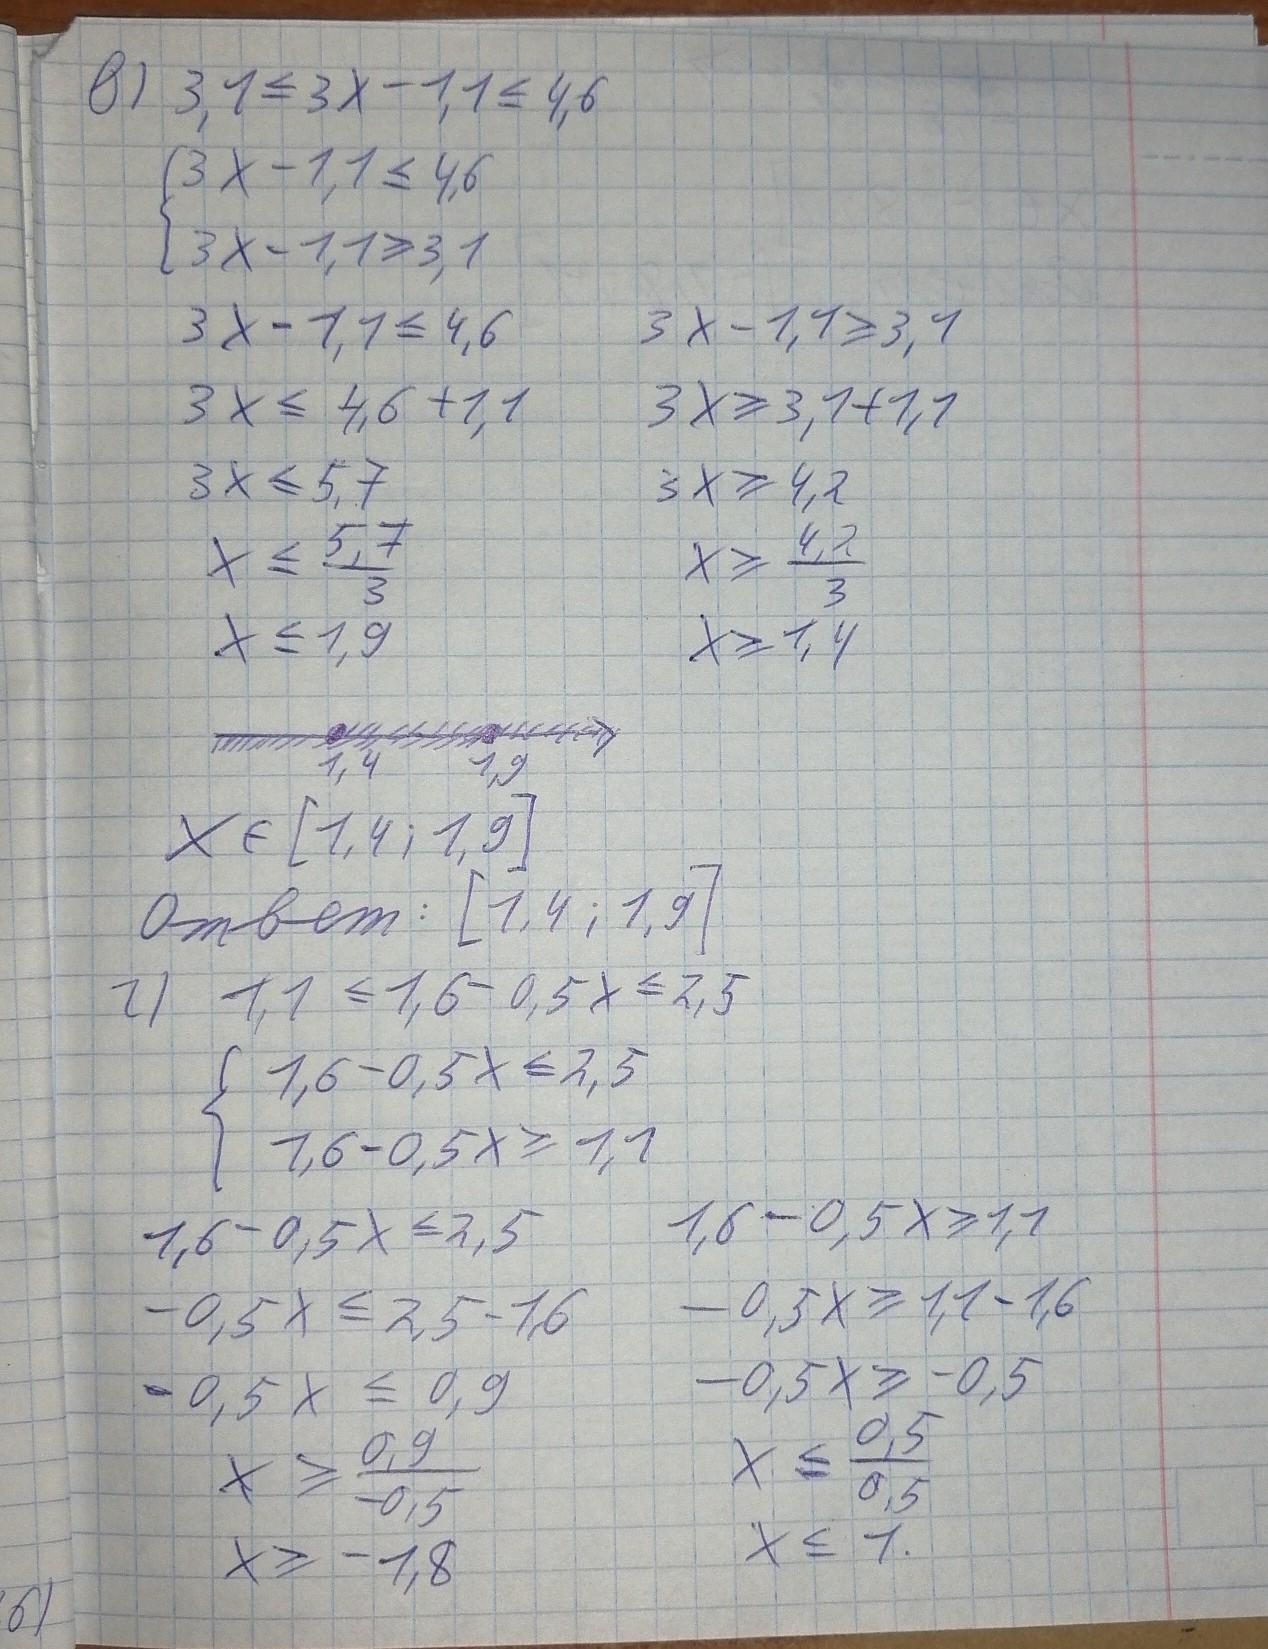 в) 3,1 ≤ 3x - 1,1 ≤ 4,6
{ 3x - 1,1 ≤ 4,6
3x - 1,1 ≥ 3,1
3x - 1,1 ≤ 4,6 3x - 1,1 ≥ 3,1
3x ≤ 4,6 + 1,1 3x ≥ 3,1 + 1,1
3x ≤ 5,7 3x ≥ 4,2
x ≤ 5,7/3 x ≥ 4,2/3
x ≤ 1,9 x ≥ 1,4
1,4 1,9
x ∈ [1,4; 1,9]
Ответ: [1,4; 1,9]
г) 1,1 ≤ 1,6 - 0,5x ≤ 2,5
{ 1,6 - 0,5x ≤ 2,5
1,6 - 0,5x ≥ 1,1
1,6 - 0,5x ≤ 2,5 1,6 - 0,5x ≥ 1,1
-0,5x ≤ 2,5 - 1,6 -0,5x ≥ 1,1 - 1,6
-0,5x ≤ 0,9 -0,5x ≥ -0,5
x ≥ 0,9/-0,5 x ≤ 0,5/0,5
x ≥ -1,8 x ≤ 1.
б)